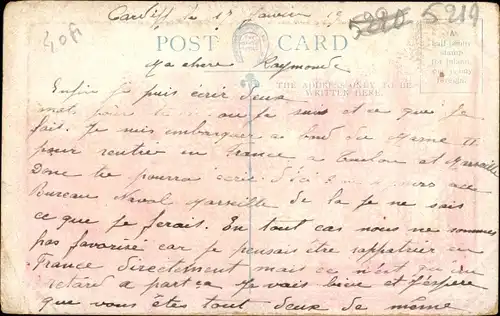 Cardiff le 15 Janvier 19
5220 5219
40f
POST CARD
Ma chère Raymonde
THE ADDRESS ONLY TO BE
WRITTEN HERE.
A
half penny
stamp
for Inland
one penny
Foreign
Enfin je puis écrir deux
mots pour où je suis et ce que je
fait. Je suis embarquer a bord du Marne II
pour rentrer en France a Toulon et Marseille
Donc tu pourra écrir d'ici jours au
Bureau Naval Marseille de la je ne sais
ce que je ferais. En tout cas nous ne sommes
pas favorisé car je pensais être rappatrier en
France directement mais ce n'est qu'un
retard a part ça je vais bien et j'espère
que vous êtes tout deux de même